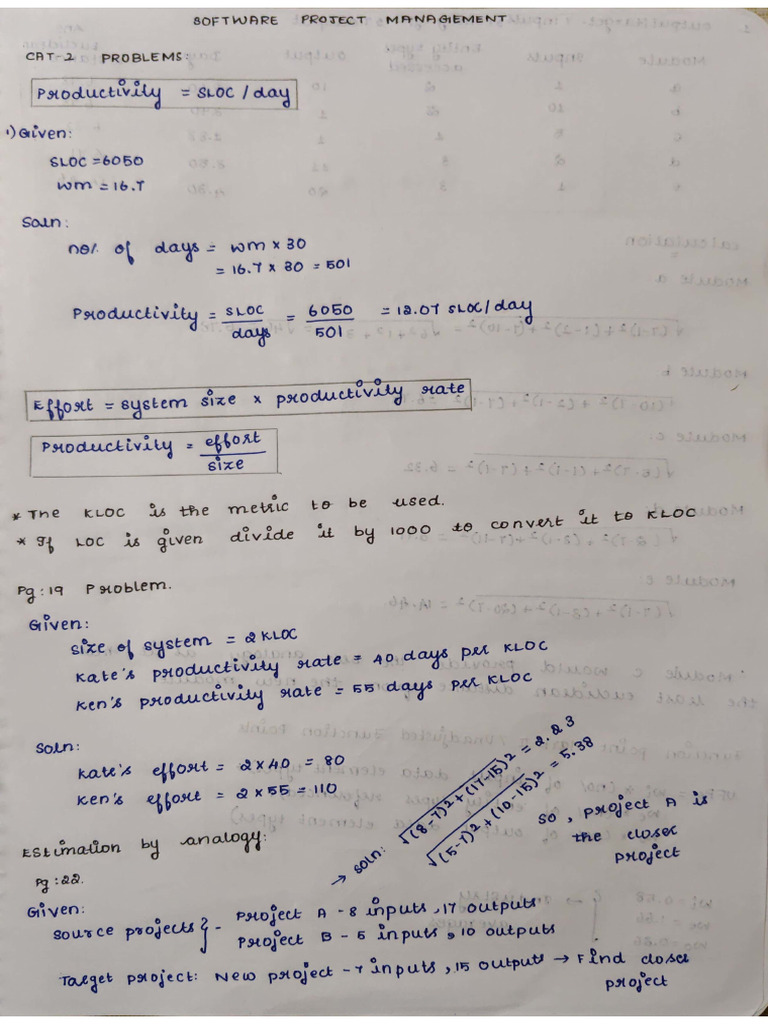 SOFTWARE PROJECT MANAGEMENT
CAT-2 PROBLEMS:
Productivity = SLOC / day
1) Given:
SLOC = 6050
WM = 16.7
Soln:
no/. of days = WM x 30
= 16.7 x 30 = 501
Productivity = SLOC / days = 6050 / 501 = 12.07 SLOC/day
Effort = system size x productivity rate
Productivity = effort / size
* The KLOC is the metric to be used.
* If LOC is given divide it by 1000 to convert it to KLOC
Pg: 19 Problem.
Given:
size of system = 2 KLOC
Kate's productivity rate = 40 days per KLOC
Ken's productivity rate = 55 days per KLOC
Soln:
Kate's effort = 2 x 40 = 80
Ken's effort = 2 x 55 = 110
→ Soln: √(8-7)² + (17-15)² = 2.23
√(5-7)² + (10-15)² = 5.38
So, project A is
the closer
project
Estimation by analogy:
Pg: 22.
Given:
Source projects } - Project A - 8 inputs, 17 outputs
Project B - 5 inputs, 10 outputs
Target project: New project - 7 inputs, 15 outputs → Find closer
project